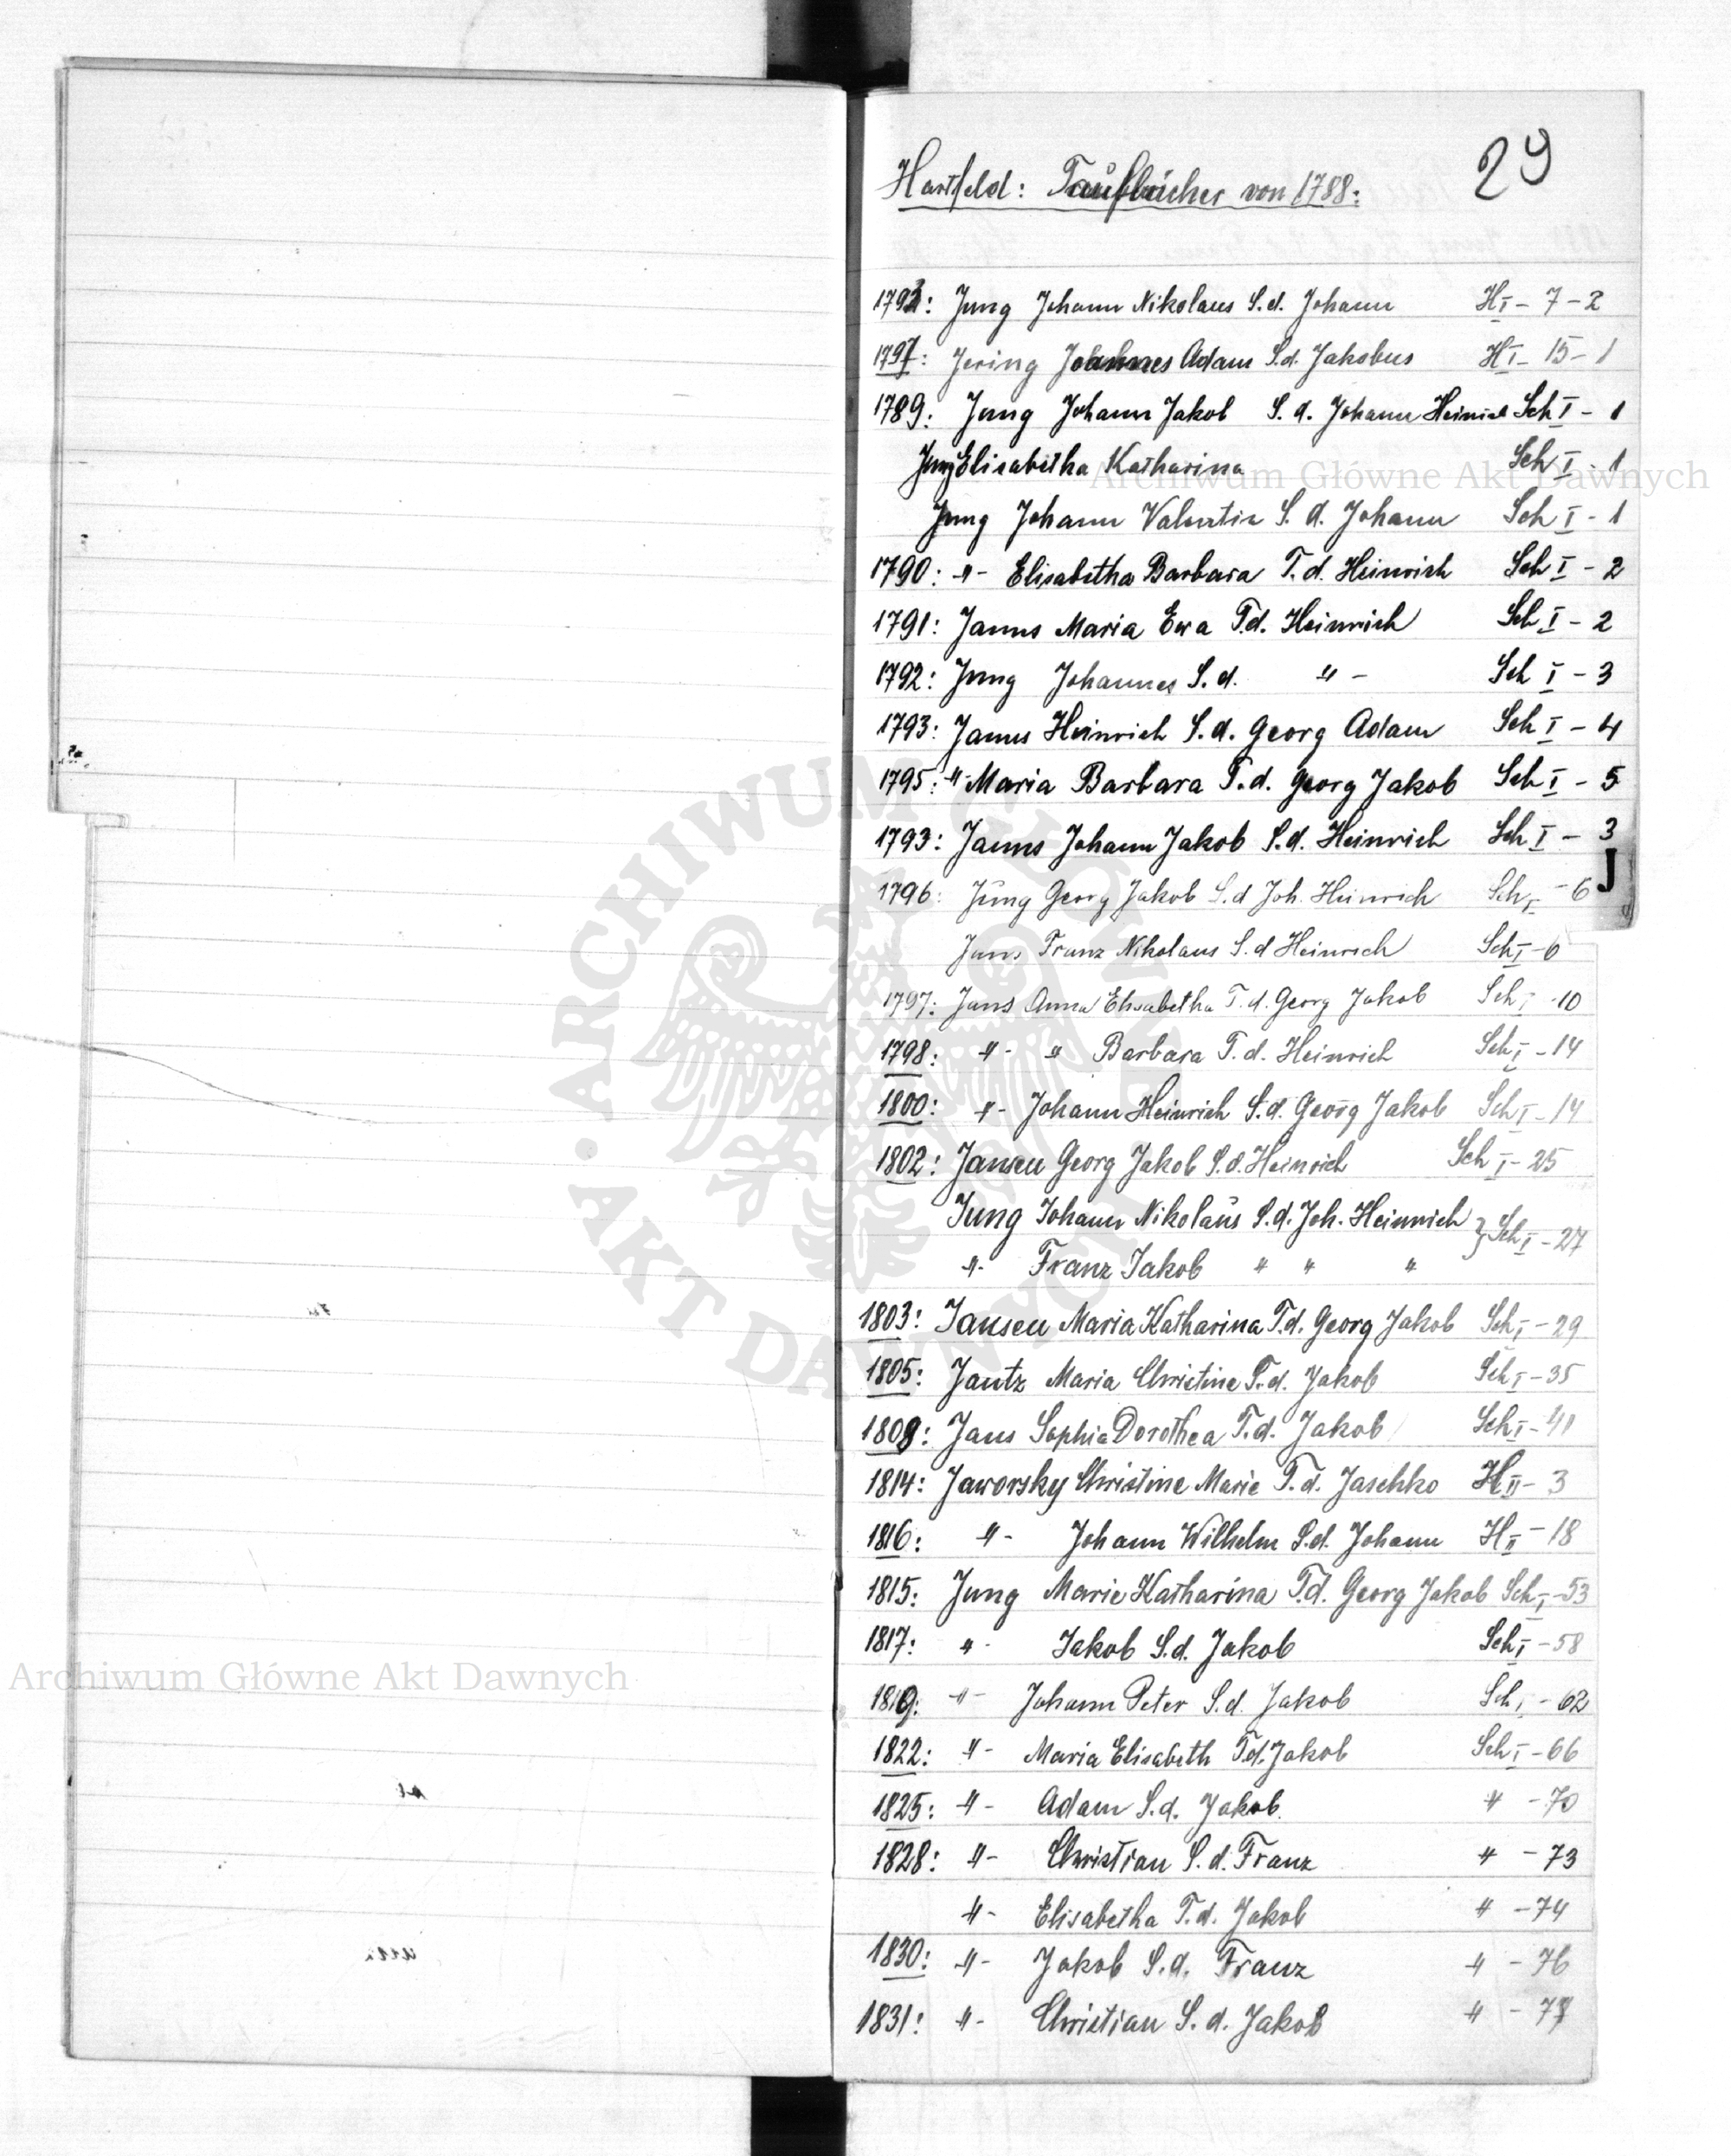 29
Hartfeld: Taufbücher von 1788:
1793: Jung Johann Nikolaus S.d. Johann H I - 7 - 2
1797: Jering Johannes Adam S.d. Jakobus H I - 15 - 1
1789: Jung Johann Jakob S. d. Johann Heinrich Sch I - 1
Jung Elisabetha Katharina Sch I - 1
Archiwum Główne Akt Dawnych
Jung Johann Valentin S. d. Johann Sch I - 1
1790: -"- Elisabetha Barbara T. d. Heinrich Sch I - 2
1791: Janns Maria Ewa T.d. Heinrich Sch I - 2
1792: Jung Johannes S. d. " - Sch I - 3
1793: Janns Heinrich S. d. Georg Adam Sch I - 4
1795: -"- Maria Barbara T. d. Georg Jakob Sch I - 5
1793: Janns Johann Jakob S. d. Heinrich Sch I - 3
J
1796: Jüng Georg Jakob S. d Joh. Heinrich Sch I - 6
Jans Franz Nikolaus S. d Heinrich Sch I - 6
1797: Jans Anna Elisabetha T. d. Georg Jakob Sch I - 10
1798: " - " Barbara T. d. Heinrich Sch I - 14
1800: " - Johann Heinrich S. d. Georg Jakob Sch I - 14
1802: Jansen Georg Jakob S. d. Heinrich Sch I - 25
Jung Johann Nikolaüs S. d. Joh. Heinrich } Sch I - 27
" - Franz Jakob " " "
1803: Jansen Maria Katharina T.d. Georg Jakob Sch I - 29
1805: Jantz Maria Christine T. d. Jakob Sch I - 35
1808: Jans Sophia Dorothea T. d. Jakob Sch I - 41
1814: Jaworsky Christine Marie T. d. Jaschko H II - 3
1816: " - Johann Wilhelm S. d. Johann H II - 18
1815: Jung Marie Katharina T.d. Georg Jakob Sch I - 53
1817: " - Jakob S. d. Jakob Sch I - 58
Archiwum Główne Akt Dawnych
1819: " - Johann Peter S. d. Jakob Sch I - 62
1822: " - Maria Elisabeth T.d. Jakob Sch I - 66
1825: " - Adam S. d. Jakob. " - 70
1828: " - Christian S. d. Franz " - 73
" - Elisabetha T. d. Jakob " - 74
1830: " - Jakob S. d. Franz " - 76
1831: " - Christian S. d. Jakob " - 77
ARCHIWUM GŁÓWNE AKT DAWNYCH